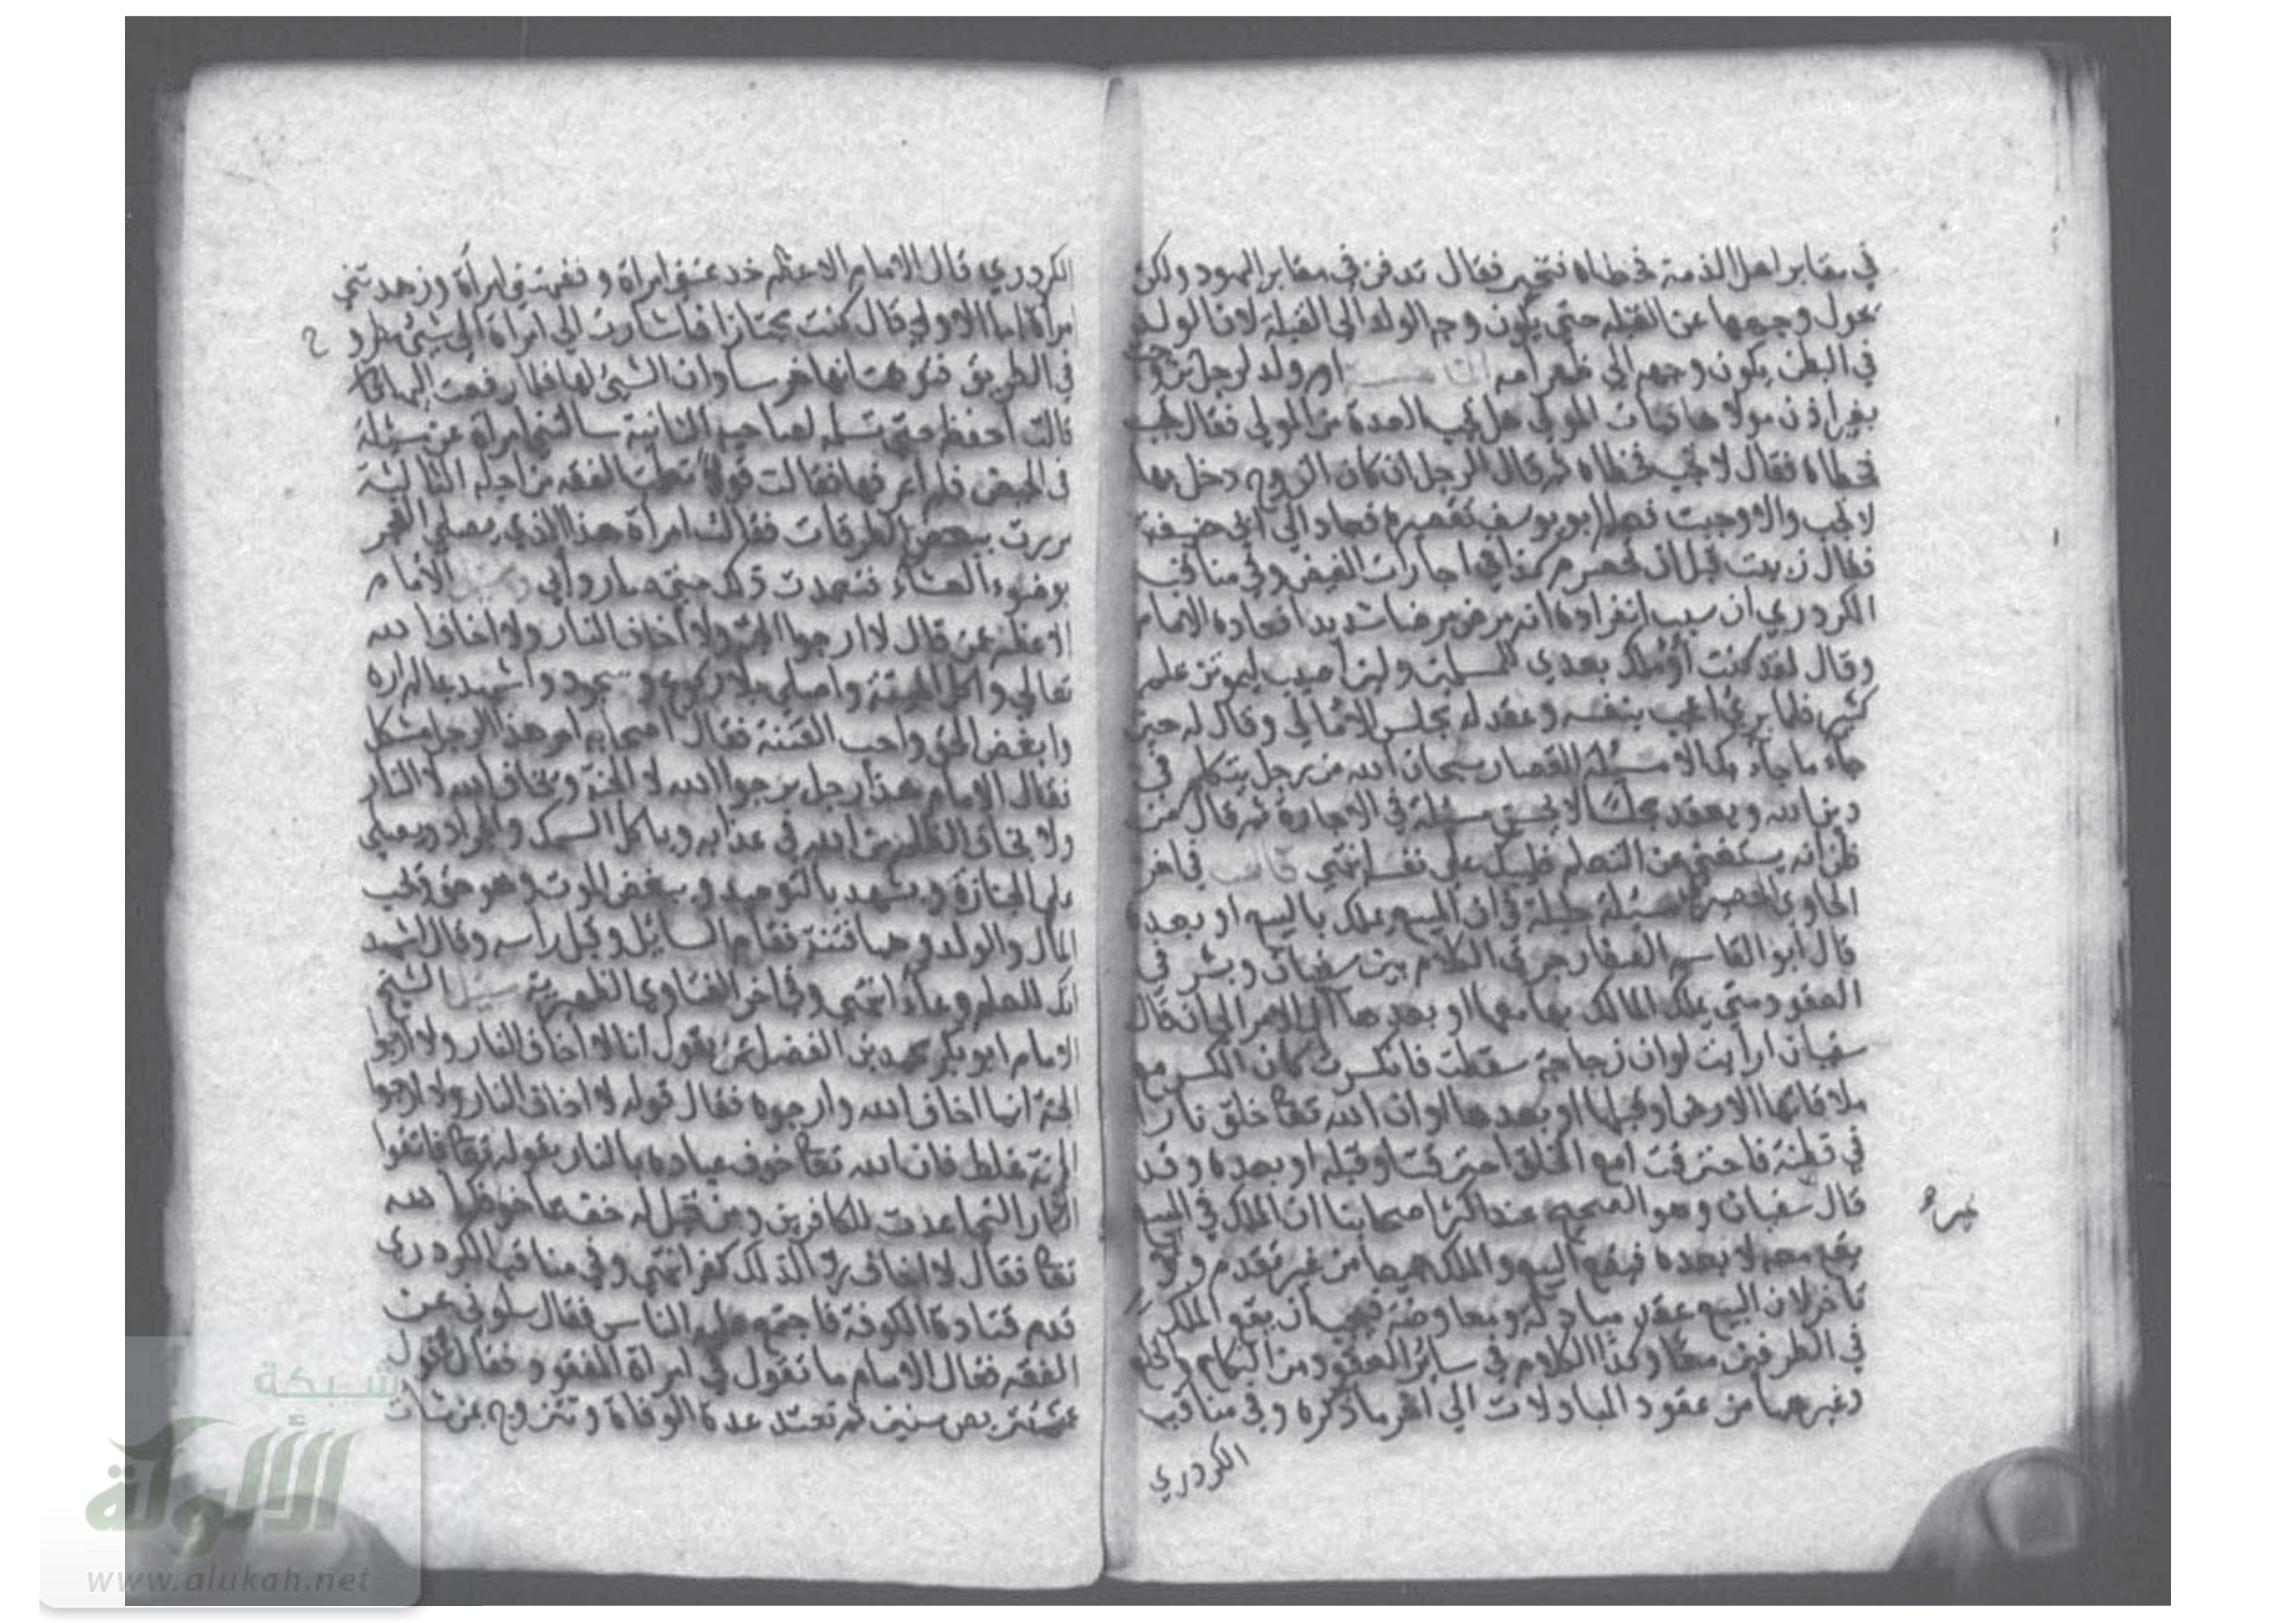 في مقابر اهل الذمة فخطاه فتحير فقال تدفن في مقابر اليهود ولكن
يحول وجهها عن القبلة حتى يكون وجه الولد الى القبلة لان الولد
في البطن يكون وجهه الي ظهر امه ام ولد لرجل تزوجت
بغير اذن مولاها فمات المولي هل تجب العدة من المولي فقال تجب
فخطاه فقال لا تجب فخطاه ثم قال الرجل ان كان الزوج دخل بها
لا تجب والا وجبت فعلم ابو يوسف تقصيره فعاد الي ابي حنيفة
فقال تزببت قبل ان تحصرم كذا في اجارات الفيض وفي مناقب
الكردري ان سبب انفراده انه مرض مرضا شديدا فعاده الامام
وقال لقد كنت اؤملك بعدي للمسلمين ولئن اصيب ليموتن علم
كثير فلما برئ اعجب بنفسه وعقد له مجلس الامالي وقال له حين
جاء ما جاء بك الا مسئلة القصار سبحان الله من رجل يتكلم في
دين الله ويعقد مجلسا لا يحسن مسئلة في الاجارة ثم قال من
ظن انه يستغني عن التعلم فليبك على نفسه انتهي في اخر
الحاوي الحصيري مسئلة جليلة في ان المبيع يملك بالبيع او بعده
قال ابو القاسم الصفار جري الكلام بين سفيان وبشر في
العقود متى يملك المالك بها معها او بعدها آل الامر الى ان قال
سفيان ارايت لو ان زجاجة سقطت فانكسرت كان الكسر مع
ملاقاتها الارض او قبلها او بعدها او ان الله تعا خلق نارا
في قطنة فاحترقت امع الخلق احترقت او قبله او بعده وقد
قال سفيان وهو الصحيح عند اكثر اصحابنا ان الملك في البيع
يقع معه لا بعده فيقع البيع والملك جميعا من غير تقدم ولا
تاخر لان البيع عقد مبادلة ومعاوضة فيجب ان يقع الملك
في الطرفين معا وكذا الكلام في سائر العقود من النكاح والخلع
وغيرهما من عقود المبادلات الي اخر ما ذكره وفي مناقب
الكردري
الكردري قال الامام الاعظم خدعتني امراة وفقهتني امرأة وزهدتني
امراة اما الاولي قال كنت مجتازا فاشارت الي امراة الي شيئ مطرو ح
في الطريق فتوهمت انها خرسا وان الشيئ لها فلما رفعت اليها
قالت احفظه حتي تسلمه لصاحبه الثانية سالتني امراة عن مسئلة
في الحيض فلم اعرفها فقالت قولا تعلمت الفقه من اجله الثالثة
مررت ببعض الطرقات فقالت امراة هذا الذي يصلي الفجر
بوضوء العشاء فتعمدت ذلك حتي صار دأبي الامام
الاعظم عن قال لا ارجوا الجنة ولا اخاف النار ولا اخاف الله
تعالي وآكل الميتة واصلي بلا ركوع وسجود واشهد بما لم اره
وابغض الحق واحب الفتنة فقال اصحابه امر هذا الرجل مشكل
فقال الامام هذا رجل يرجوا الله لا الجنة ويخاف الله لا النار
ولا يخاف الظلم من الله في عذابه وياكل السمك والجراد ويصلي
على الجنازة ويشهد بالتوحيد ويبغض الموت وهو حق ويحب
المال والولد وهما فتنة فقام السائل وقبل راسه وقال اشهد
انك للعلم وعاء انتهي وفي اخر الفتاوي الظهيرية سئل الشيخ
الامام ابو بكر محمد بن الفضل عمن يقول انا لا اخاف النار ولا ارجوا
الجنة انما اخاف الله وارجوه فقال قوله لا اخاف النار ولا ارجوا
الجنة غلط فان الله تعا خوف عباده بالنار بقوله تعا فاتقوا
النار التي اعدت للكافرين ومن قيل له خف مما خوفك الله
تعا فقال لا اخاف ردا لذلك كفر انتهي وفي مناقب الكردري
قدم قتادة الكوفة فاجتمع عليه الناس فقال سلوني عن
الفقه فقال الامام ما تقول في امراة المفقود فقال
تتربص سنين ثم تعتد عدة الوفاة وتتزوج بمن شات
شبكة
الألوكة
www.alukah.net